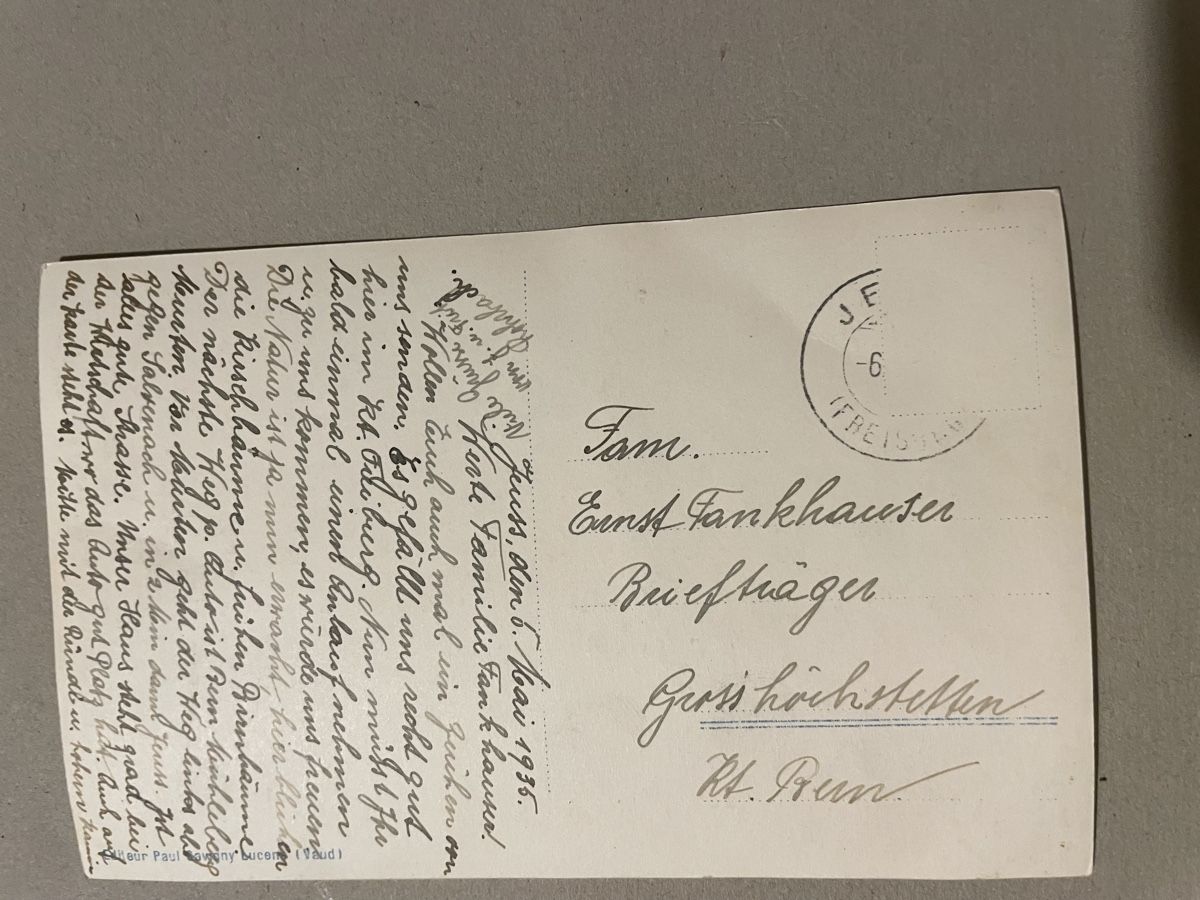 Jeuss, den 5. Mai 1935.
Werte Familie Fankhauser!
Wollen Euch auch mal ein Zeichen von
uns senden. Es gefällt uns recht gut
hier im Kt. Friburg. Nun müsst Ihr
bald einmal einen Anlauf nehmen
u. zu uns kommen, es würde uns freuen
Die Natur ist ja nun erwacht hier blühen
die Kirschbäume u. frühen Birnbäume
Der nächste Weg p. Auto ist Bern Mühleberg
Murten. Von Murten geht der Weg links ab
gegen Salvenach u. in 2 km dann Jeuss. Ist
alles gute Strasse. Unser Haus steht grad bei
der Wirtschaft wo das Auto gut Platz hat. Auch auf
der Karte steht es. Mitte mit der Ründe u. hohem Kamin
Viele Grüsse
von
Fam.
Ernst Fankhauser
Briefträger
Grosshöchstetten
Kt. Bern
JE
-6
(FREIBURG
Editeur Paul Savigny Lucens (Vaud)